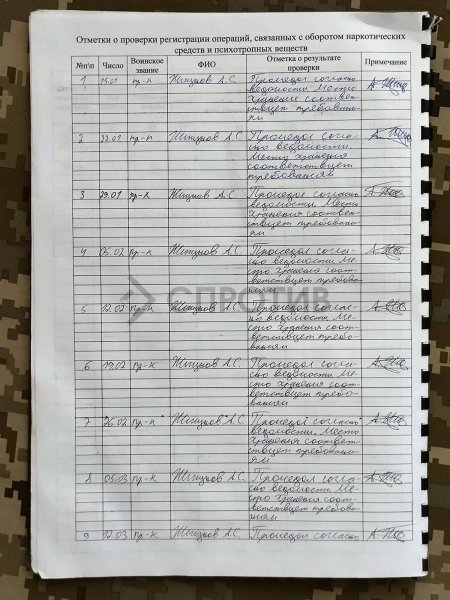 Отметки о проверки регистрации операций, связанных с оборотом наркотических
средств и психотропных веществ
№п\п Число Воинское звание ФИО Отметка о результате проверки Примечание
1 15.01 пр-к А.С. Проведал согласно
ведомости. Место
хранения соответ-
ствует требовани-
ям
2 22.01 пр-к А.С. Проведал согла-
сно ведомости.
Место хранения
соответствует
требованиям
3 29.01 пр-к А.С. Проведал согласно
ведомости. Место
хранения соответ-
ствует требовани-
ям
4 05.02 пр-к А.С. Проведал согла-
сно ведомости. Ме-
сто хранения соот-
ветствует требова-
ниям
СПРОТИВ
5 12.02 пр-к А.С. Проведал соглас-
но ведомости. Ме-
сто хранения соот-
ветствует требо-
ваниям
6 19.02 пр-к А.С. Проведал согла-
сно ведомости. Ме-
сто хранения соот-
ветствует требо-
ваниям
7 26.02 пр-к А.С. Проведал согласно
ведомости. Место
хранения соответ-
ствует требовани-
ям
8 05.03 пр-к А.С. Проведал согла-
сно ведомости. Ме-
сто хранения соот-
ветствует требова-
ниям
9 12.03 пр-к А.С. Проведал согласно